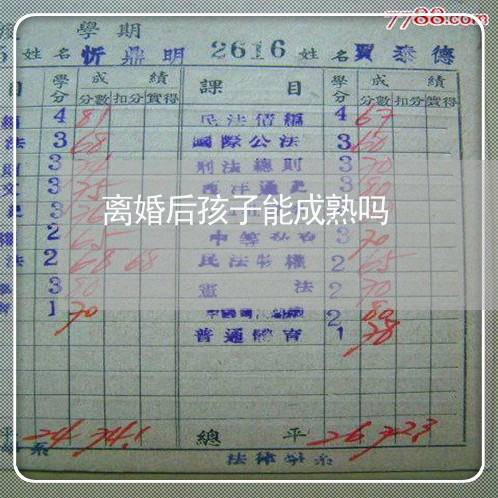 7788.com
學期
姓名 忻鼎明 2616 姓名 賈泰德
目 學分 成績 課目 學分 成績
分數 扣分 實得 分數 扣分 實得
4 81 民法債編 4 67
法 3 68 國際公法 3 60
3 刑法總則 3 70
3 75 西洋通史 3 80
離婚后孩子能成熟吗
2 65 3 70
法 2 68 68 民法物權 2 65
3 80 憲法 2 70
1 70 2 80
普通體育 1 78
平 24 74.1 總平 26 72.3
系 法律學系